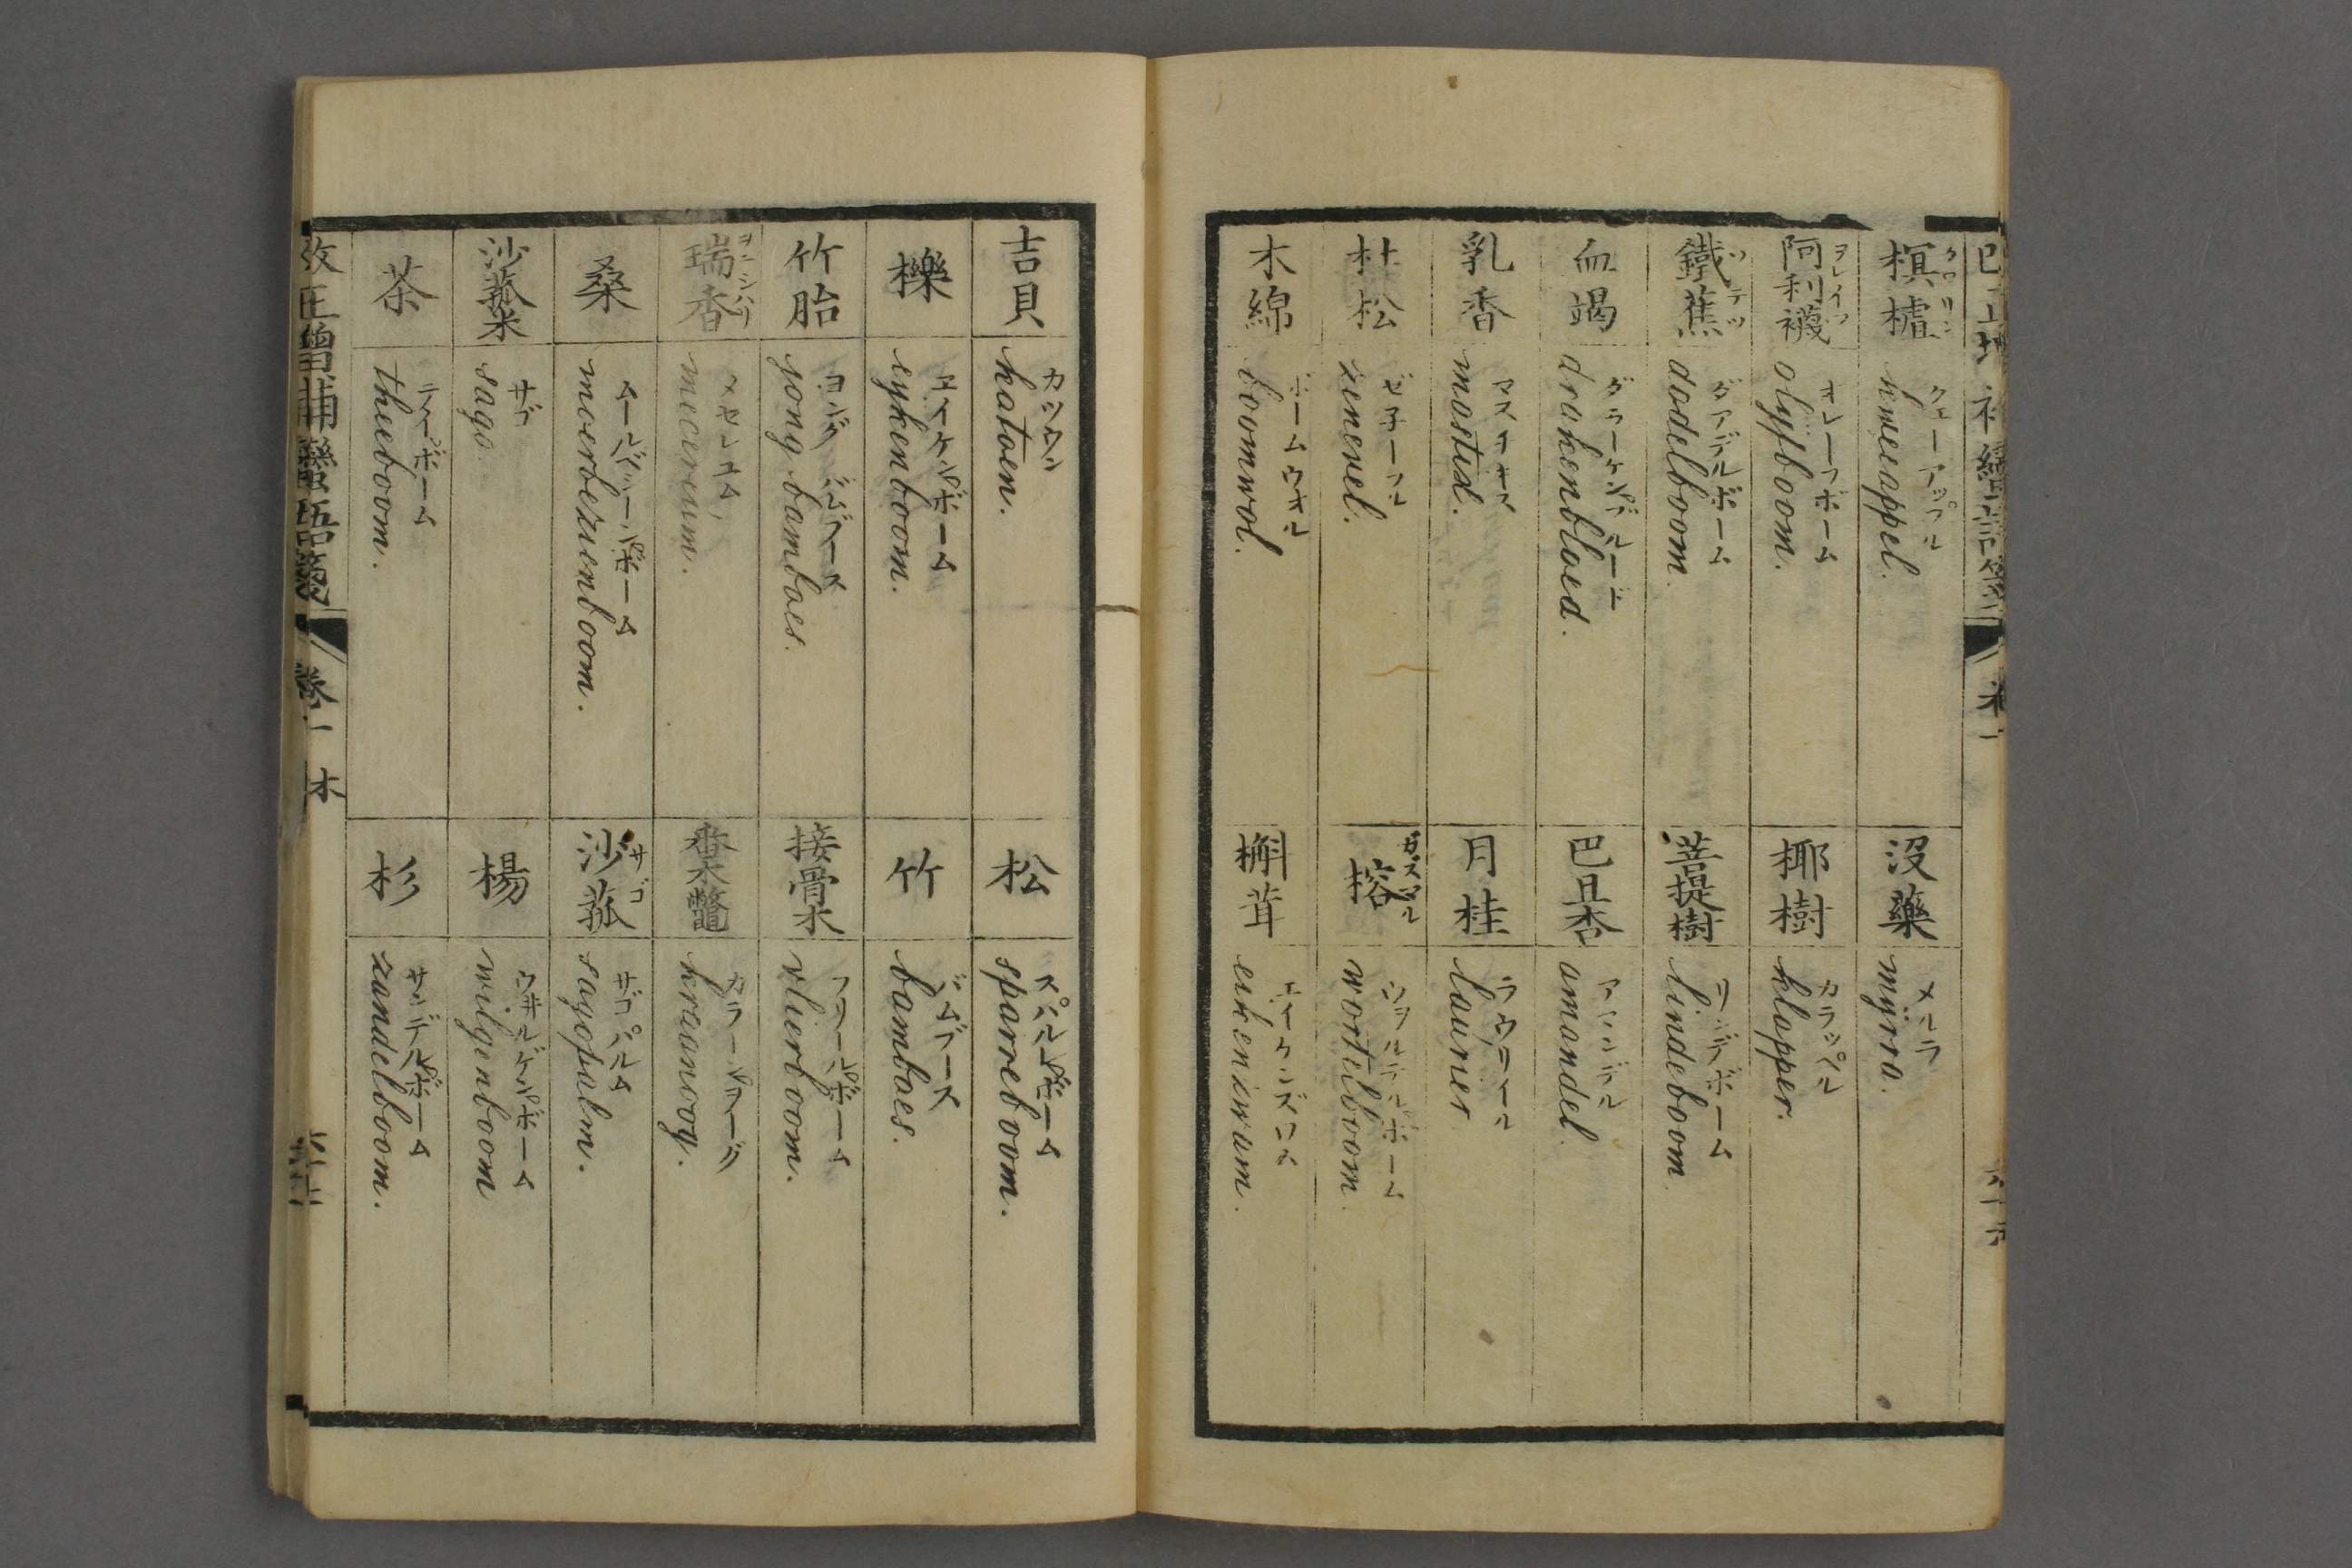 榠樝 クワリン
クェーアップル
kweeappel.
沒藥
メルラ
mijrra.
阿利襪 ヲレイフ
オレーフボーム
olyfboom.
椰樹
カラッペル
klapper.
鐵蕉 ソテツ
ダアデルボーム
dadelboom.
菩提樹
リンデボーム
lindeboom.
血竭
ダラーケンブルーエ
drakenbloed.
巴旦杏
アマンデル
amandel.
乳香
マスチキス
mastix.
月桂
ラウリイル
laurier
杜松
ゼ子ーフル
zenevel.
榕 ガズマル
ヴヲルテルボーム
wortelboom.
木綿
ボームウオル
boomwol.
槲茸
エイケンズワム
eikenzwam.
吉貝
カツウン
katoen.
松
スパルレボーム
sparreboom.
櫟
エイケンボーム
eykenboom.
竹
バムブース
bamboes.
竹胎
ヨングバムブース
jong bamboes.
接骨木
フリールボーム
vlierboom.
瑞香
メセレエム
mecereum.
番木鼈
カラーンヲーグ
kraanoog.
桑
moerbezienboom.
沙菰 サゴ
サゴパルム
sagopalm.
沙菰米
サゴ
sago
楊
ウ井ルゲンボーム
wilgenboom
茶
テイーボーム
theeboom.
杉
サンデルボーム
zandelboom.
改正增補蠻語箋 卷一 木